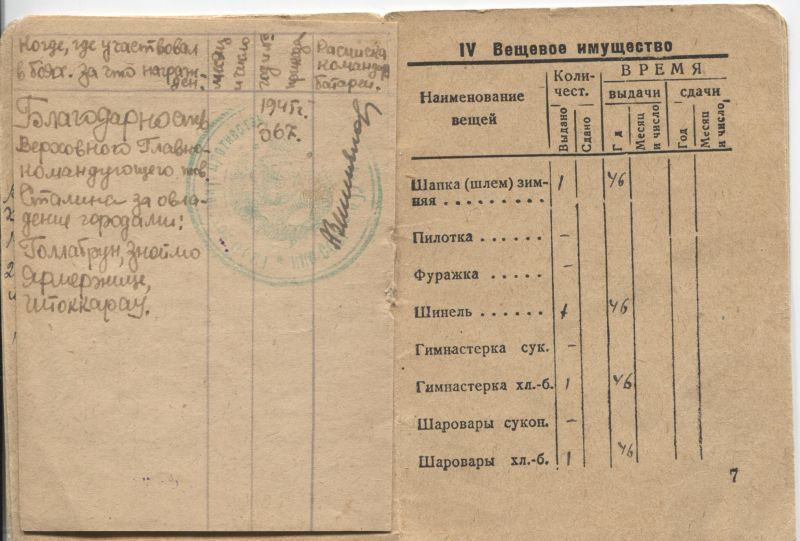 Когде, где участвовал
в боях. за что награж-
ден.
месяц
и число
год
приказа
Расписка
командира
батареи.
Благодарность
Верховного Главно-
командующего тов.
Сталина за овла-
дение городами:
Голлабрун, Зноймо
Ярмержице,
Штоккарау.
1945г.
067.
IV Вещевое имущество
Наименование
вещей
Коли-
чест.
Выдано
Сдано
ВРЕМЯ
выдачи
сдачи
Г д
Месяц
и число
Год
Месяц
и число
Шапка (шлем) зим-
няя . . . . . . . . . 1 46
Пилотка . . . . . . –
Фуражка . . . . . –
Шинель . . . . . . 1 46
Гимнастерка сук. –
Гимнастерка хл.-б. 1 46
Шаровары сукон. –
Шаровары хл.-б. 1 46
7